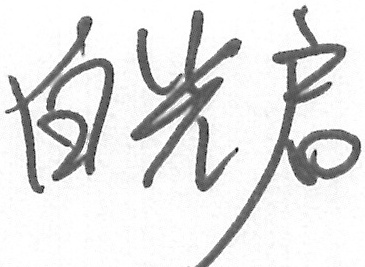 白光启